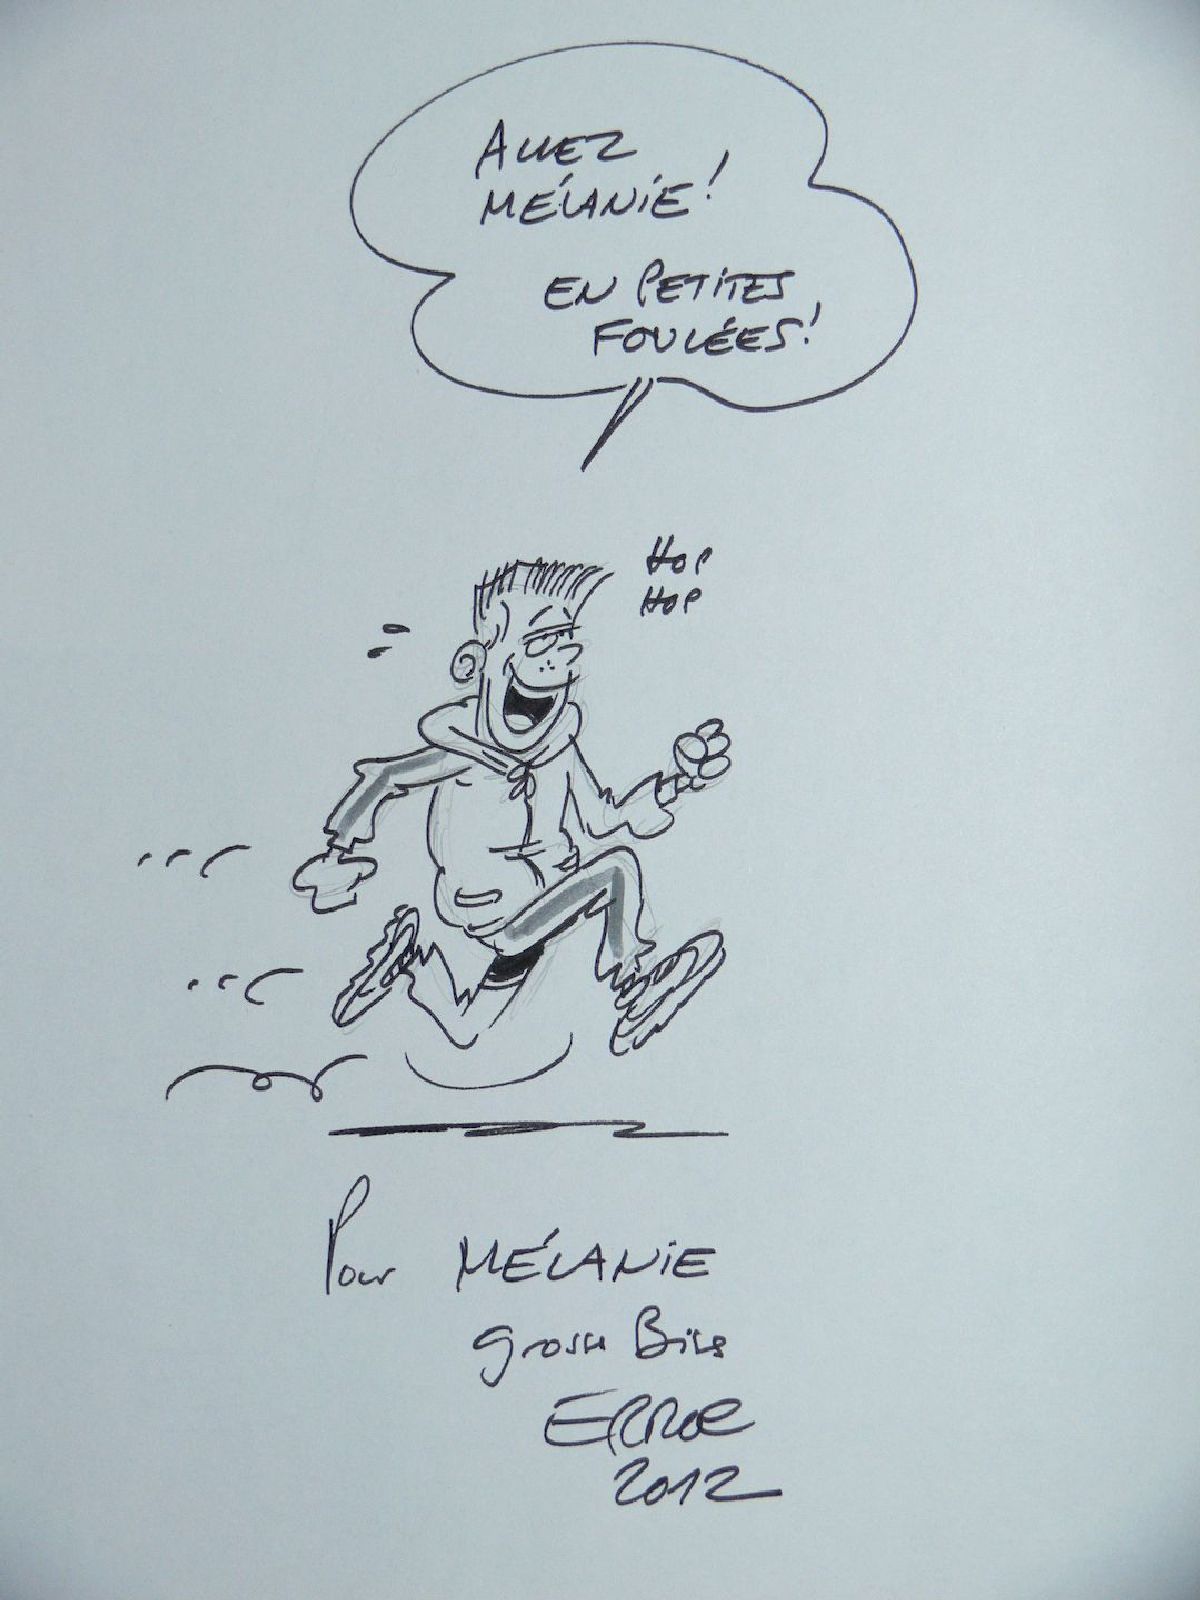 ALLEZ
MÉLANIE!
EN PETITES
FOULÉES!
HOP
HOP
Pour MÉLANIE
grosse Bise
ERROC
2012